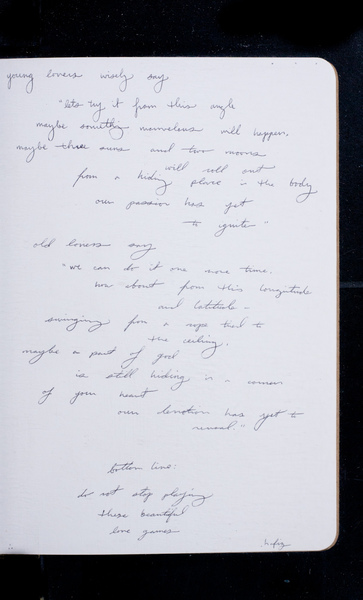 young lovers wisely say
"lets try it from this angle
maybe something marvelous will happen,
maybe three suns and two moons
will roll out
from a hiding place in the body
our passion has yet
to ignite"
old lovers say
"we can do it one more time.
how about from this longitude
and latitude -
swinging from a rope tied to
the ceiling.
maybe a part of god
is still hiding in a corner
of your heart
our devotion has yet to
reveal."
bottom line:
do not stop playing
these beautiful
love games
hafiz